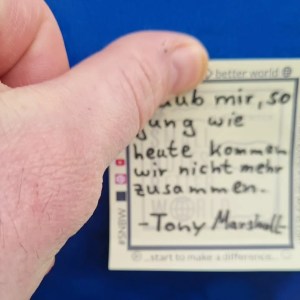 better world
aub mir, so
jung wie
heute kommen
wir nicht mehr
zusammen.
- Tony Marshall
#SNBW
...start to make a difference...